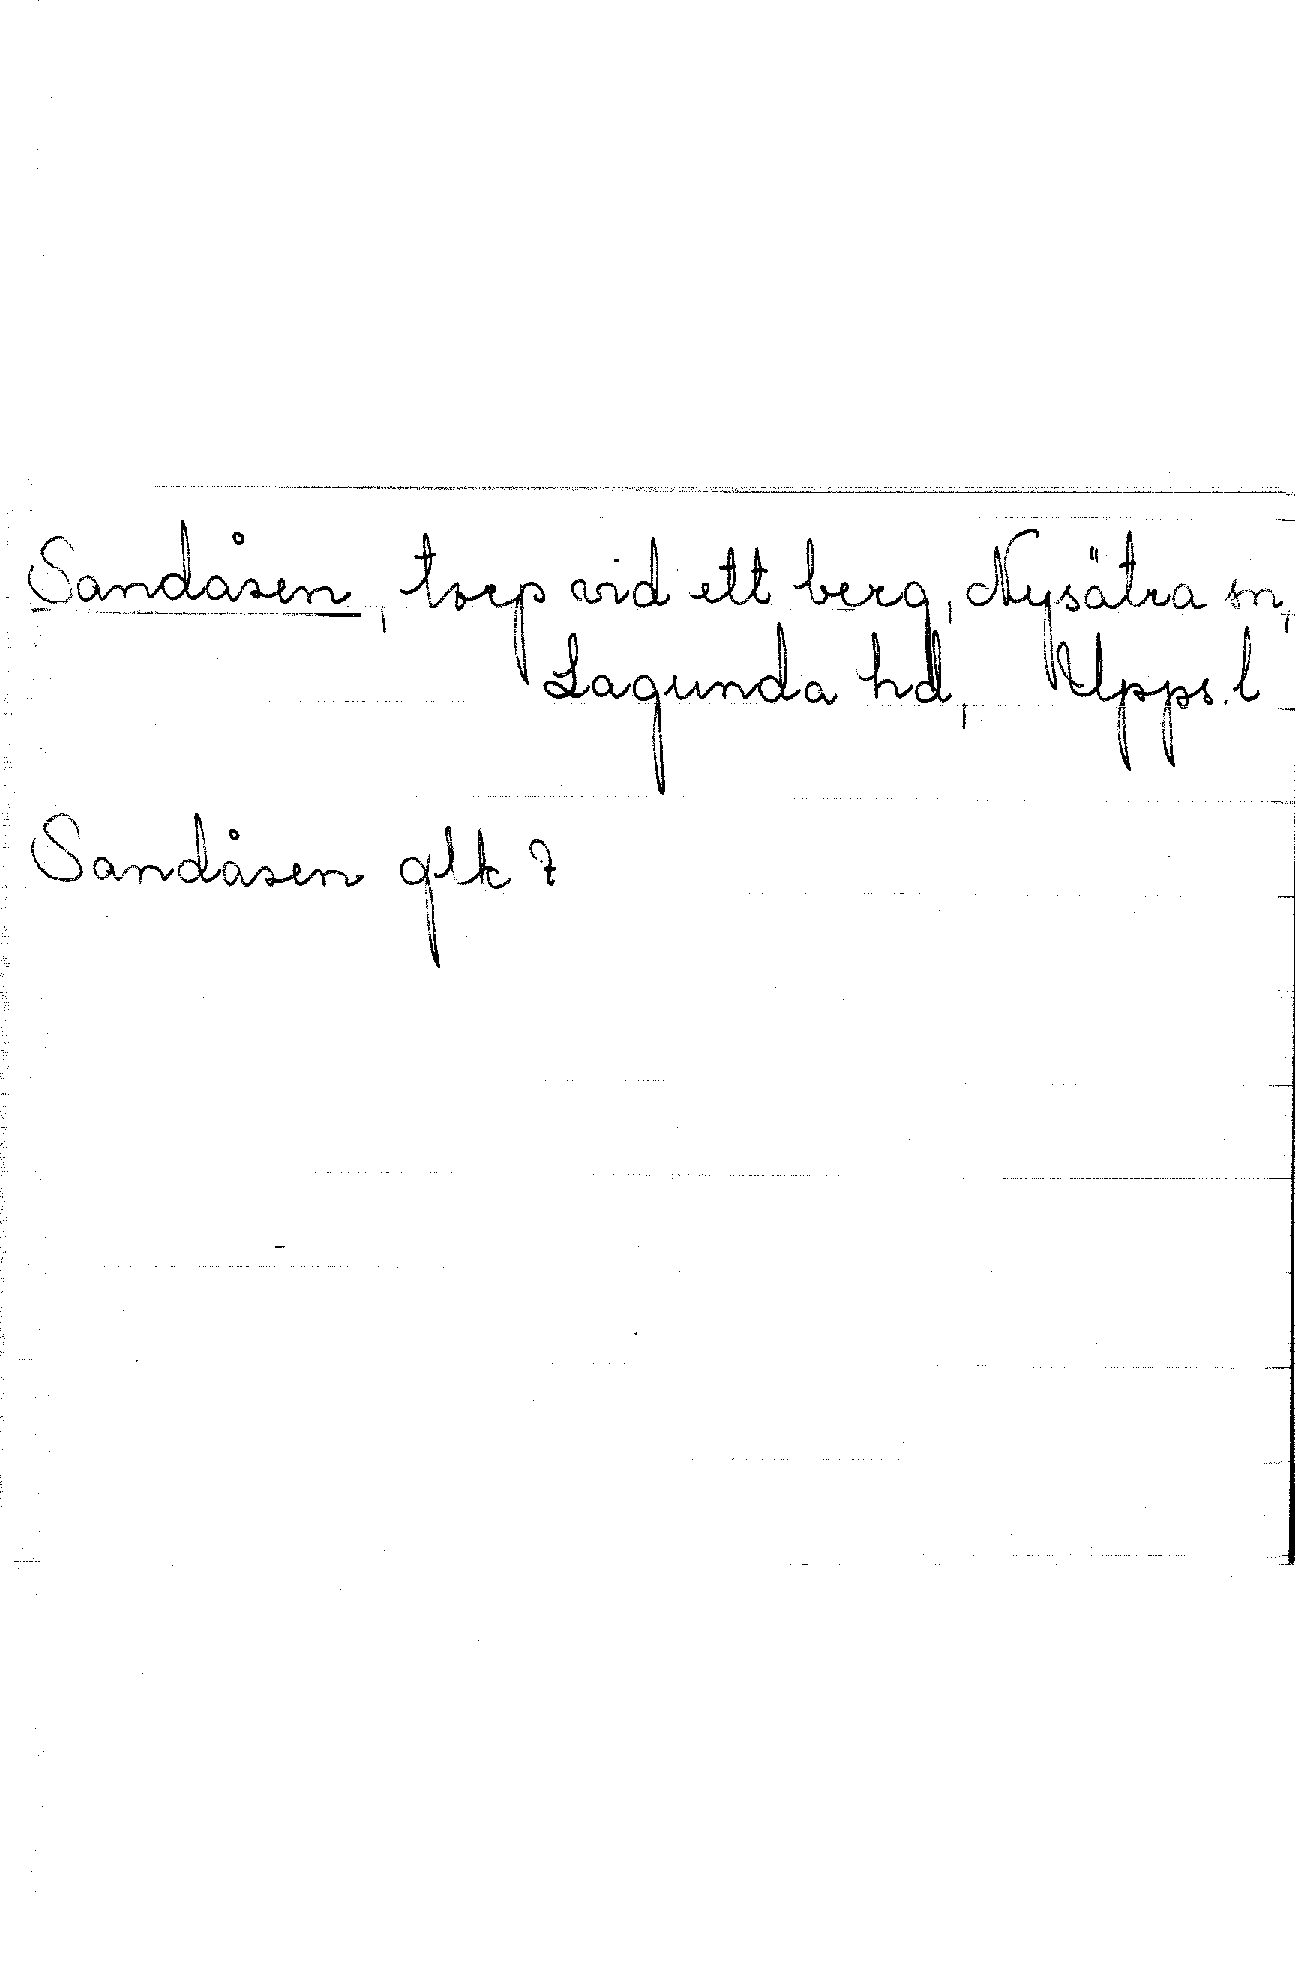 Sandåsen, torp vid ett berg, Nysätra sn,
Lagunda hd, Upps. l
Sandåsen glk 7